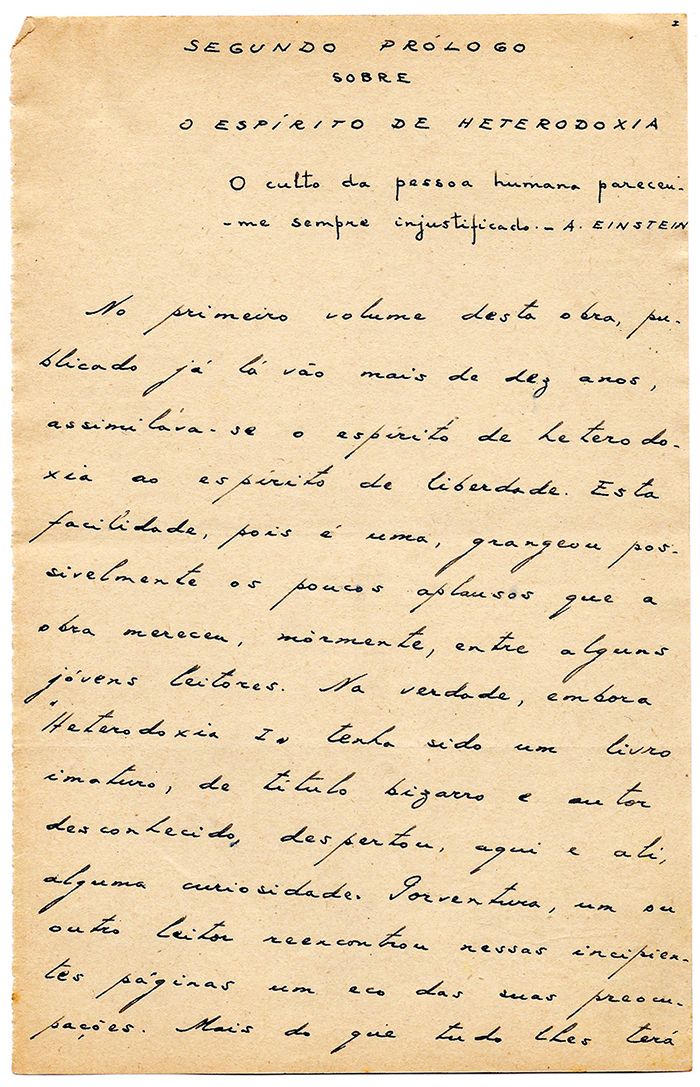 I
SEGUNDO PRÓLOGO
SOBRE
O ESPÍRITO DE HETERODOXIA
O culto da pessoa humana pareceu-
-me sempre injustificado. — A. EINSTEIN
No primeiro volume desta obra, pu-
blicado já lá vão mais de dez anos,
assimilava-se o espírito de heterodo-
xia ao espírito de liberdade. Esta
facilidade, pois é uma, grangeou pos-
sivelmente os poucos aplausos que a
obra mereceu, mòrmente, entre alguns
jóvens leitores. Na verdade, embora
"Heterodoxia I" tenha sido um livro
imaturo, de título bizarro e autor
desconhecido, despertou, aqui e ali,
alguma curiosidade. Porventura, um ou
outro leitor reencontrou nessas incipien-
tes páginas um eco das suas preocu-
pações. Mais do que tudo lhes terá